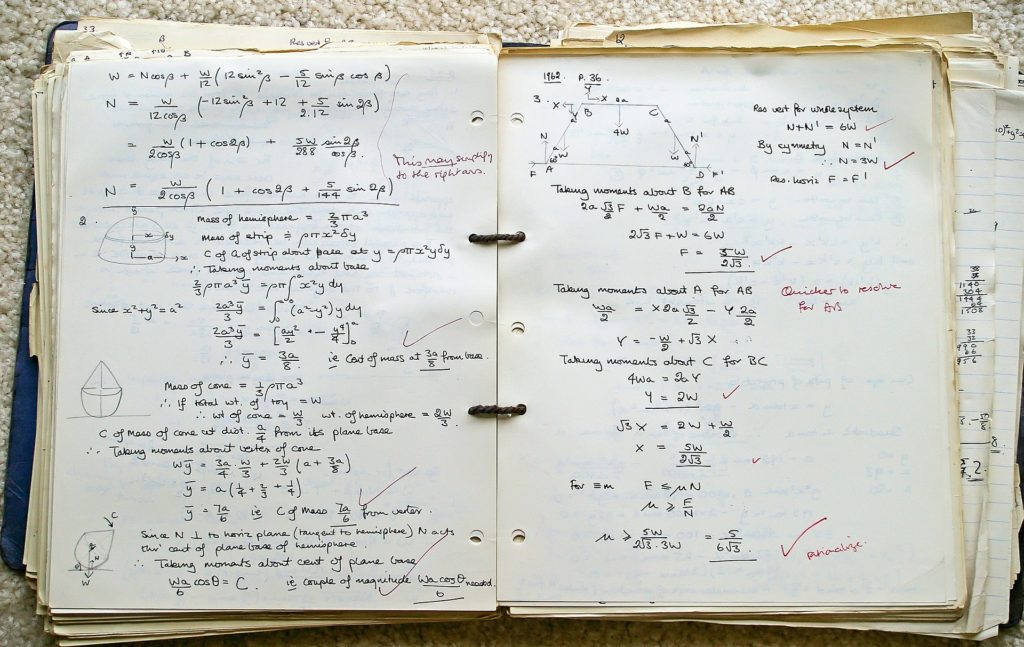 33
Res vert
W = Ncosβ + W/12 (12sin²β − 5/12 sinβ cosβ)
N = W/12cosβ (−12sin²β + 12 + 5/2.12 sin2β)
= W/2cosβ (1 + cos2β) + 5W/288 sin2β/cosβ.
This may simplify
to the right ans.
N = W/2cosβ (1 + cos2β + 5/144 sin2β)
2.
y
x δy
y
a x
Mass of hemisphere = 2/3 πa³
Mass of strip ≡ ρπx²δy
C of G of strip about base at y = ρπx²yδy
∴ Taking moments about base
2/3 ρπa³ȳ = ρπ∫₀ᵃ x²y dy
since x²+y²=a² 2a³ȳ/3 = ∫₀ᵃ (a²−y²)y dy
2a³ȳ/3 = [ay²/2 + − y⁴/4]₀ᵃ
∴ ȳ = 3a/8. ie Cent of mass at 3a/8 from base.
Mass of cone = 1/3 ρπa³
∴ If total wt. of toy = W
∴ wt of cone = W/3 wt. of hemisphere = 2W/3.
C of Mass of cone at dist. a/4 from its plane base
∴ Taking moments about vertex of cone
Wȳ = 3a/4 . W/3 + 2W/3 (a + 3a/8)
ȳ = a(1/4 + 2/3 + 1/4)
ȳ = 7a/6 ie C of Mass 7a/6 from vertex.
C
N
W
Since N ⊥ to horiz plane (tangent to hemisphere) N acts
thro' cent of plane base of hemisphere.
∴ Taking moments about cent of plane base
Wa/6 cosθ = C. ie couple of magnitude Wa cosθ/6 needed.
12.
1962 P. 36.
3. Y
X X 2a
B C
4W
N W W N'
F A D F'
Res vert for whole system
N+N' = 6W
By symmetry N = N'
∴ N = 3W
Res. horiz F = F'
Taking moments about B for AB
2a√3/2 F + Wa/2 = 2aN/2
2√3F + W = 6W
F = 5W/2√3.
Taking moments about A for AB
Quicker to resolve
for AB
Wa/2 = X2a√3/2 − Y 2a/2
Y = −W/2 + √3 X
Taking moments about C for BC
4Wa = 2aY
Y = 2W
√3 X = 2W + W/2
X = 5W/2√3
For ≡m F ≤ μN
μ ≥ F/N
μ ≥ 5W/2√3.3W = 5/6√3.
rationalize.
1140
304
1444
64
1508
33
22
990
66
956